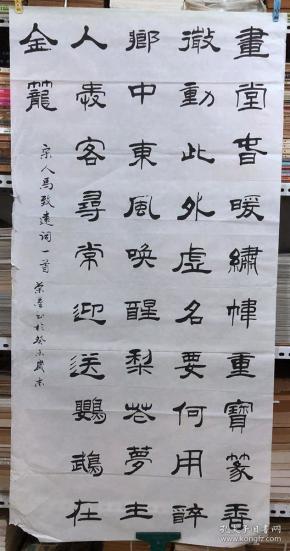 畫堂春暖繡幃重寶篆香
微動此外虛名要何用醉
鄉中東風喚醒梨花夢主
人愛客尋常迎送鸚鵡在
金籠
宋人馬致遠詞一首 於癸未歲末
孔夫子旧书网